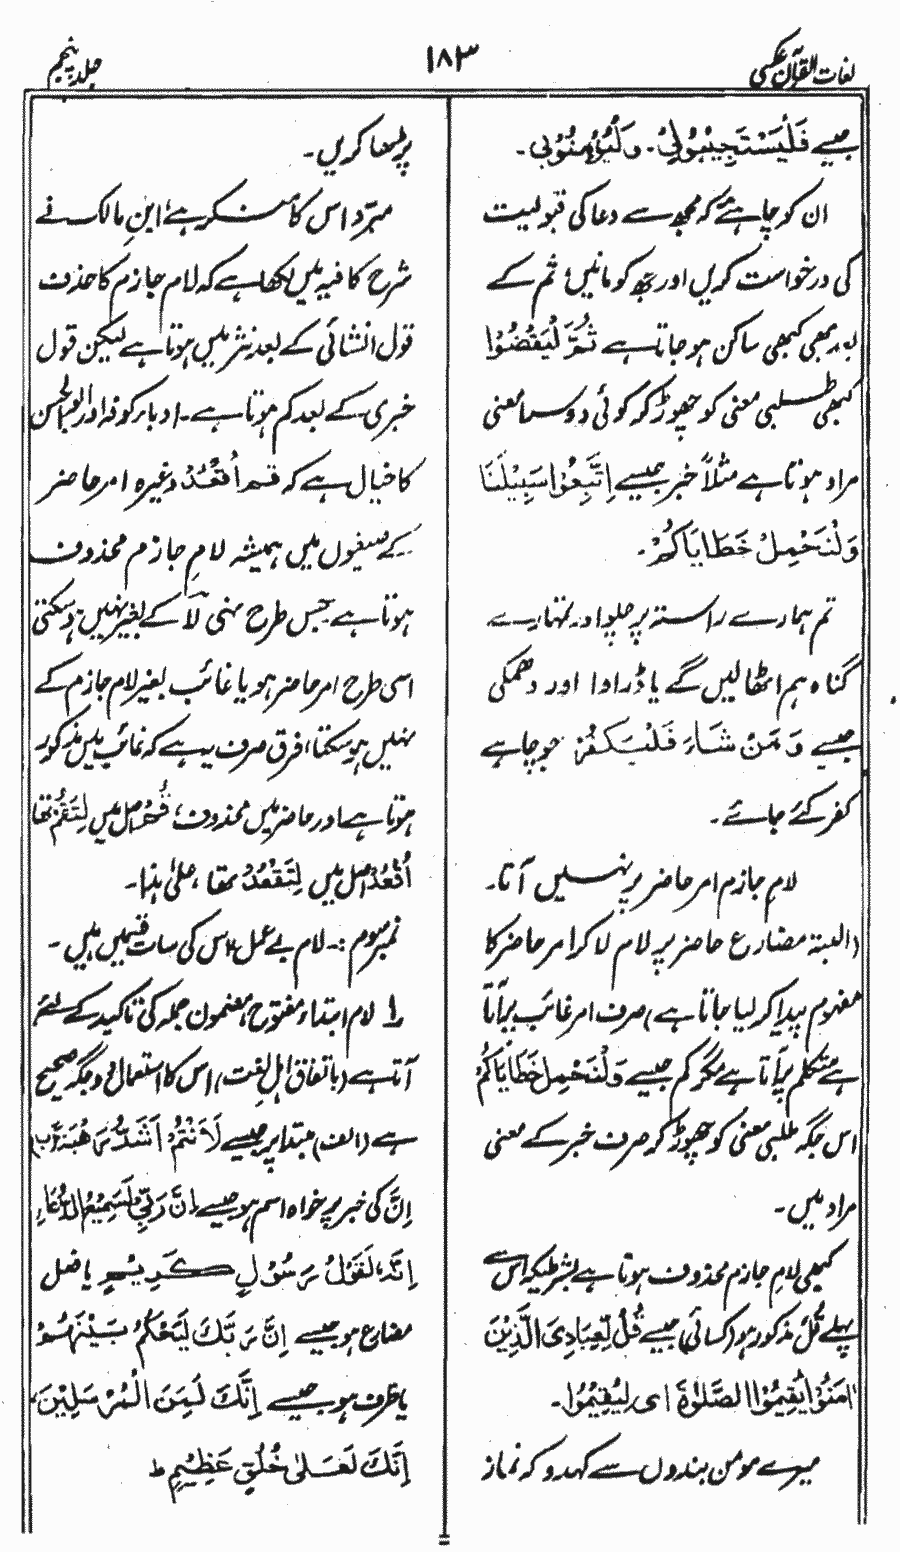 لغات القرآن عکسی
۱۸۳
جلد پنجم
جیسے فَلْيَسْتَجِيْبُوْا لِیْ۔ وَلْيُؤْمِنُوْا بِیْ۔
ان کو چاہئے کہ مجھ سے دعا کی قبولیت
کی درخواست کریں اور مجھ کو مانیں، ثم کے
بعد بھی کبھی ساکن ہو جاتا ہے ثُمَّ لْيَقْضُوْا
کبھی طلبی معنی کو چھوڑ کر کوئی دوسرا معنی
مراد ہوتا ہے مثلاً خبر جیسے اِتَّبِعُوْا سَبِيْلَنَا
وَلْنَحْمِلْ خَطَايَاكُمْ۔
تم ہمارے راستہ پر چلو اور تمہارے
گناہ ہم اٹھا لیں گے یا ڈراوا اور دھمکی
جیسے وَ مَنْ شَاءَ فَلْيَكْفُرْ جو چاہے
کفر کئے جائے۔
لامِ جازم امر حاضر پر نہیں آتا۔
(البتہ مضارع حاضر پر لام لا کر امر حاضر کا
مفہوم پیدا کر لیا جاتا ہے) صرف امر غائب پر آتا
ہے متکلم پر آتا ہے مگر کم جیسے وَلْنَحْمِلْ خَطَايَاكُمْ
اس جگہ طلبی معنی کو چھوڑ کر صرف خبر کے معنی
مراد ہیں۔
کبھی لامِ جازم محذوف ہوتا ہے بشرطیکہ اس سے
پہلے قُلْ مذکور ہو (کسائی) جیسے قُلْ لِّعِبَادِیَ الَّذِيْنَ
اٰمَنُوْا يُقِيْمُوا الصَّلٰوةَ ای لِيُقِيْمُوْا۔
میرے مومن بندوں سے کہدو کہ نماز
پڑھا کریں۔
مبرّد اس کا منکر ہے، ابنِ مالک نے
شرح کافیہ میں لکھا ہے کہ لام جازم کا حذف
قول انشائی کے بعد نثر میں ہوتا ہے لیکن قول
خبری کے بعد کم ہوتا ہے۔ ادباء کوفہ اور ابو الحسن
کا خیال ہے کہ قم اُقْعُدْ وغیرہ امر حاضر
کے صیغوں میں ہمیشہ لامِ جازم محذوف
ہوتا ہے جس طرح نہی لَا کے بغیر نہیں ہو سکتی
اسی طرح امر حاضر ہو یا غائب بغیر لام جازم کے
نہیں ہو سکتا، فرق صرف یہ ہے کہ غائب میں مذکور
ہوتا ہے اور حاضر میں محذوف، قُمْ اصل میں لِتَقُمْ تھا
اُقْعُدْ اصل میں لِتَقْعُدْ تھا، علیٰ ہذا۔
نمبر سوم :۔ لام بے عمل، اس کی سات قسمیں ہیں۔
۱؎ لام ابتداء مفتوح، مضمون جملہ کی تاکید کے لئے
آتا ہے (باتفاق اہلِ لغت) اس کا استعمال دو جگہ صحیح
ہے (الف) مبتدا پر جیسے لَاَنْتُمْ اَشَدُّ رَهْبَةً (ب)
اِنَّ کی خبر پر خواہ اسم ہو جیسے اِنَّ رَبِّیْ لَسَمِيْعُ الدُّعَاءِ
اِنَّهٗ لَقَوْلُ رَسُوْلٍ كَرِيْمٍ یا فعل
مضارع ہو جیسے اِنَّ رَبَّكَ لَيَحْكُمُ بَيْنَهُمْ
یا ظرف ہو جیسے اِنَّكَ لَمِنَ الْمُرْسَلِيْنَ،
اِنَّكَ لَعَلٰی خُلُقٍ عَظِيْمٍ ط